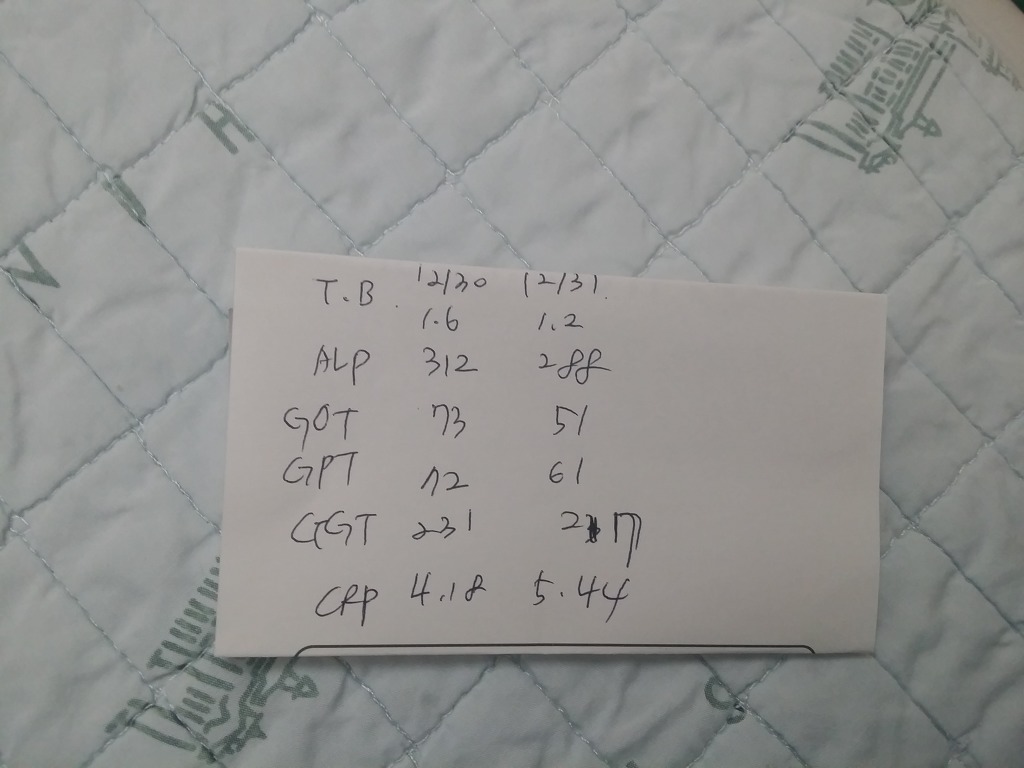 T.B 12/30 12/31.
1.6 1.2
ALP 312 288
GOT 73 51
GPT 72 61
GGT 231 217
CRP 4.18 5.44